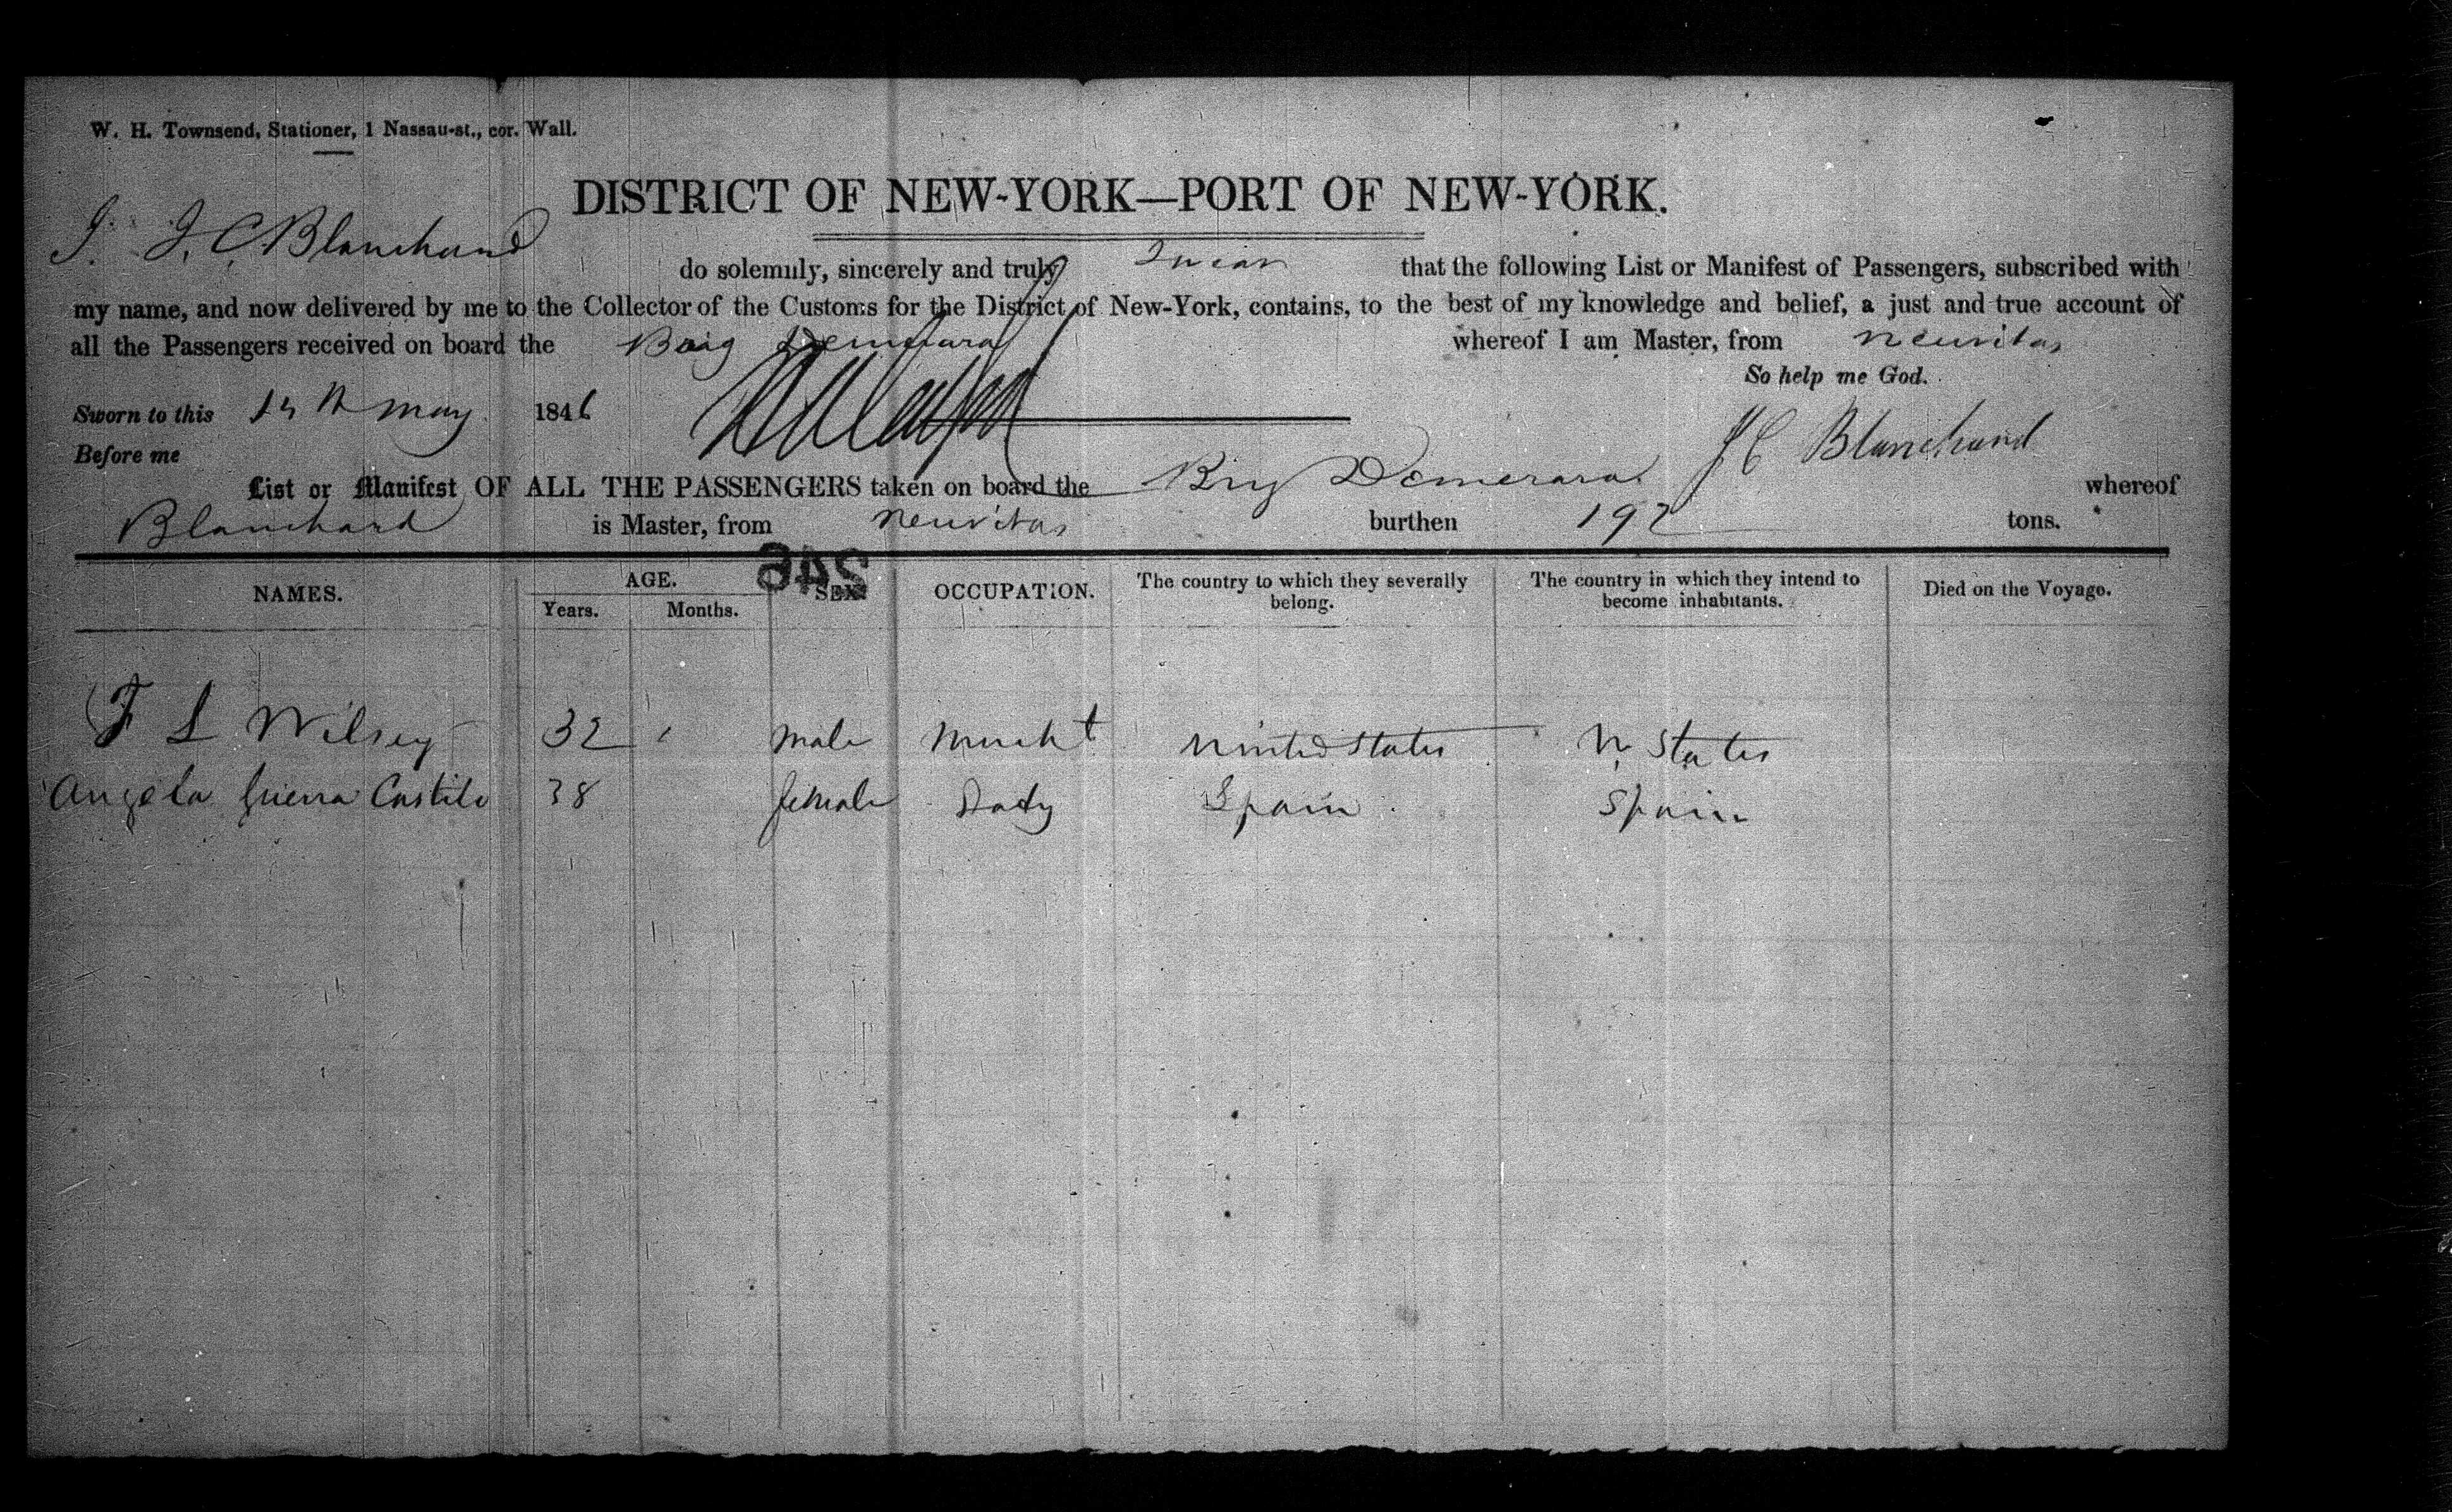 W. H. Townsend, Stationer, 1 Nassau-st., cor. Wall.
DISTRICT OF NEW-YORK—PORT OF NEW-YORK.
I. J. C. Blanchard do solemnly, sincerely and truly Swear that the following List or Manifest of Passengers, subscribed with
my name, and now delivered by me to the Collector of the Customs for the District of New-York, contains, to the best of my knowledge and belief, a just and true account of
all the Passengers received on board the Brig Demerara whereof I am Master, from Neuvitas
So help me God.
Sworn to this th may 1846
Before me J C Blanchard
List or Manifest OF ALL THE PASSENGERS taken on board the Brig Demerara whereof
Blanchard is Master, from Neuvitas burthen 192 tons.
246
NAMES. AGE. SEX. OCCUPATION. The country to which they severally belong. The country in which they intend to become inhabitants. Died on the Voyage.
Years. Months.
F L Wilsey 32 male Mercht United States U. States
Angela Guerra Castilo 38 female Lady Spain Spain